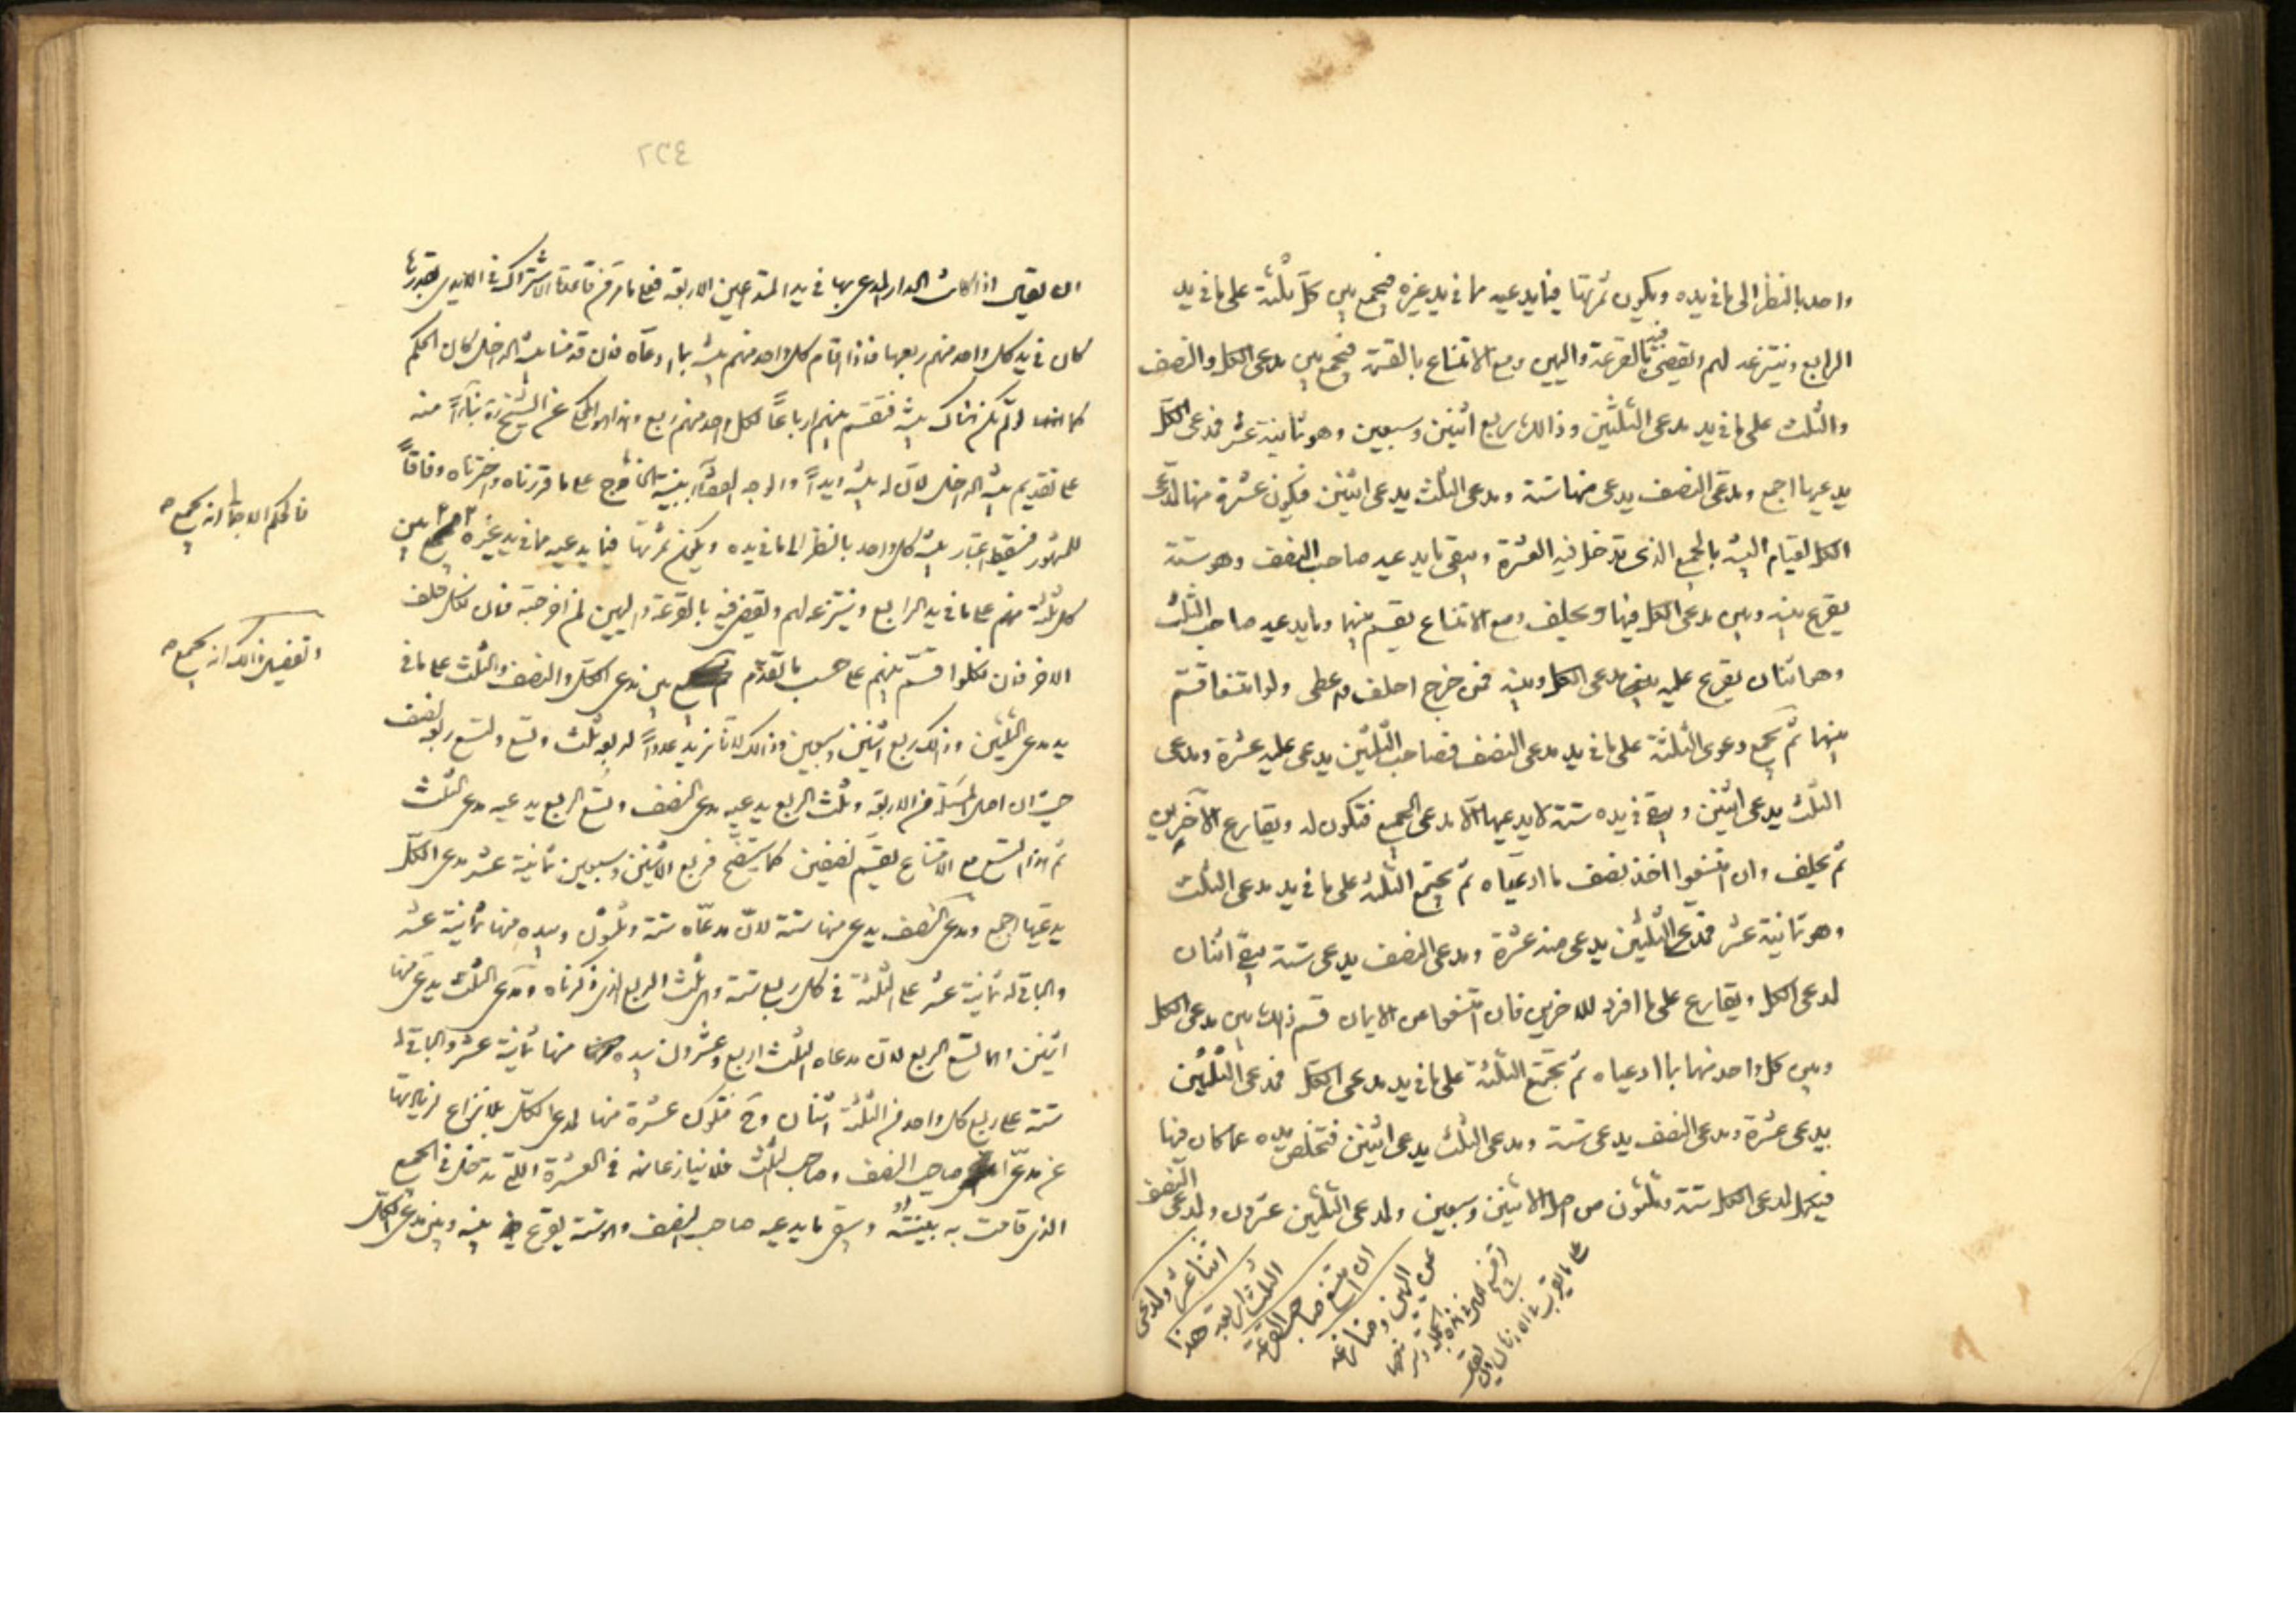 واحد بالنظر الى ما فى يده ويكون ثمرتها فيما يدعيه مما فى يد غيره فيجمع بين كل ثلثة على ما فى يد
الرابع وينتزعه لهم ويقضى فيه بالقرعة واليمين ومع الامتناع بالقسمة فيجمع بين مدعى الكل والنصف
والثلث على ما فى يد مدعى الثلثين وذالك ربع اثنين وسبعين وهو ثمانية عشر فمدعى الكل
يدعيها اجمع ومدعى النصف يدعى منها ستة ومدعى الثلث يدعى اثنين فيكون عشرة منها لمدعى
الكل لقيام البينة بالجميع الذى تدخل فيه العشرة ويبقى ما يدعيه صاحب النصف وهو ستة
يقرع بينه وبين مدعى الكل فيها ويحلف ومع الامتناع يقسم بينهما وما يدعيه صاحب الثلث
وهو اثنان يقرع عليه بين مدعى الكل وبينه فمن خرج احلف واعطى ولو امتنعا قسم
بينهما ثم تجمع دعوى الثلثة على ما فى يد مدعى النصف فصاحب الثلثين يدعى عليه عشرة ومدعى
الثلث يدعى اثنين ويبقى فى يده ستة لا يدعيها الا مدعى الجميع فتكون له ويقارع الآخرين
ثم يحلف وان امتنعوا اخذ نصف ما ادعياه ثم تجتمع الثلثة على ما فى يد مدعى الثلث
وهو ثمانية عشر فمدعى الثلثين يدعى منه عشرة ومدعى النصف يدعى ستة يبقى اثنان
لمدعى الكل ويقارع على ما افرد للاخرين فان امتنعوا من الايمان قسم ذلك بين مدعى الكل
وبين كل واحد منهما بما ادعياه ثم تجتمع الثلثة على ما فى يد مدعى الكل فمدعى الثلثين
يدعى عشرة ومدعى النصف يدعى ستة ومدعى الثلث يدعى اثنين فتخلص يده عما كان فيها
فيكمل لمدعى الكل ستة وثلثون من اصل الاثنين وسبعين ولمدعى الثلثين عشرون ولمدعى النصف
اثنا عشر ولمدعى
الثلث اربعة هذا
ان امتنع صاحب القرعة
عن اليمين ومنازعه
٢٣٤
ان يقال اذا كانت الدار المدعى بها فى يد المتداعيين الاربعة فعلى ما مر من قاعدة الاشتراك فى الايدى
كان فى يد كل واحد منهم ربعها فاذا اقام كل واحد منهم بينة بما ادعاه فان قدمنا بينة الداخل كان الحكم
كما لو لم يكن هناك بينة فتقسم بينهم ارباعا لكل واحد منهم ربع وهذا هو المحكى عن الشيخ بناءً منه
على تقديم بينة الداخل لان له بينة ويداً والوجه القضاء ببينة الخارج على ما قررناه واخترناه وفاقاً
للمشهور فيسقط اعتبار بينة كل واحد بالنظر الى ما فى يده ويكون ثمرتها فيما يدعيه مما فى يد غيره بين
كل ثلثة منهم على ما فى يد الرابع وينتزعه لهم ويقضى فيه بالقرعة واليمين لمن اخرجته فان نكل حلف
الاخر فان نكلوا قسم بينهم على حسب ما تقدم بين مدعى الكل والنصف والثلث على ما فى
يد مدعى الثلثين وذالك ربع اثنين وسبعين وذالك لانا نريد عدداً لربعه ثلث وتسع ولتسع ربعه نصف
حيث ان اصل المسئلة من الاربعة وثلث الربع يدعيه مدعى النصف وتسع الربع يدعيه مدعى الثلث
ثم هذا التسع مع الامتناع يقسم نصفين كما يتضح فربع الاثنين وسبعين ثمانية عشر مدعى الكل
يدعيها اجمع ومدعى النصف يدعى منها ستة لان مدعاه ستة وثلثون وبيده منها ثمانية عشر
والباقى له ثمانية عشر على الثلثة فى كل ربع ستة وهى ثلث الربع الذى ذكرناه ومدعى الثلث يدعى منها
اثنين وهما تسع الربع لان مدعاه الثلث اربع وعشرون بيده منها ثمانية عشر والباقى له
ستة على ربع كل واحد من الثلثة اثنان فتكون عشرة منها لمدعى الكل بلا نزاع
عن مدعى صاحب النصف وصاحب الثلث فلا ينازعانه فى العشرة التى تدخل فى الجميع
الذى قامت به بينته ويبقى ما يدعيه صاحب النصف وهو ستة يقرع بينه وبين مدعى الكل
فالحكم انه يجمع
وتفصيل ذالك انه يجمع